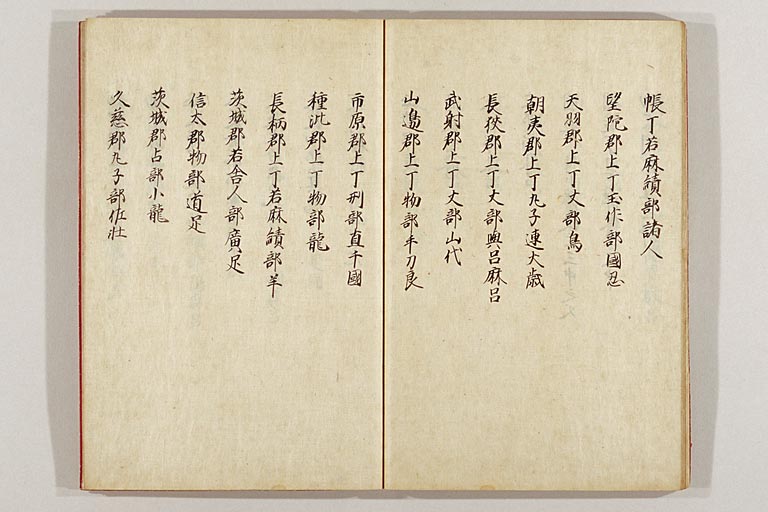 帳丁若麻績部諸人
望陀郡上丁玉作部國忍
天羽郡上丁丈部鳥
朝夷郡上丁丸子連大歳
長狹郡上丁丈部與呂麻呂
武射郡上丁丈部山代
山邊郡上丁物部乎刀良
市原郡上丁刑部直千國
種淲郡上丁物部龍
長柄郡上丁若麻績部羊
茨城郡若舎人部廣足
信太郡物部道足
茨城郡占部小龍
久慈郡丸子部佐壮